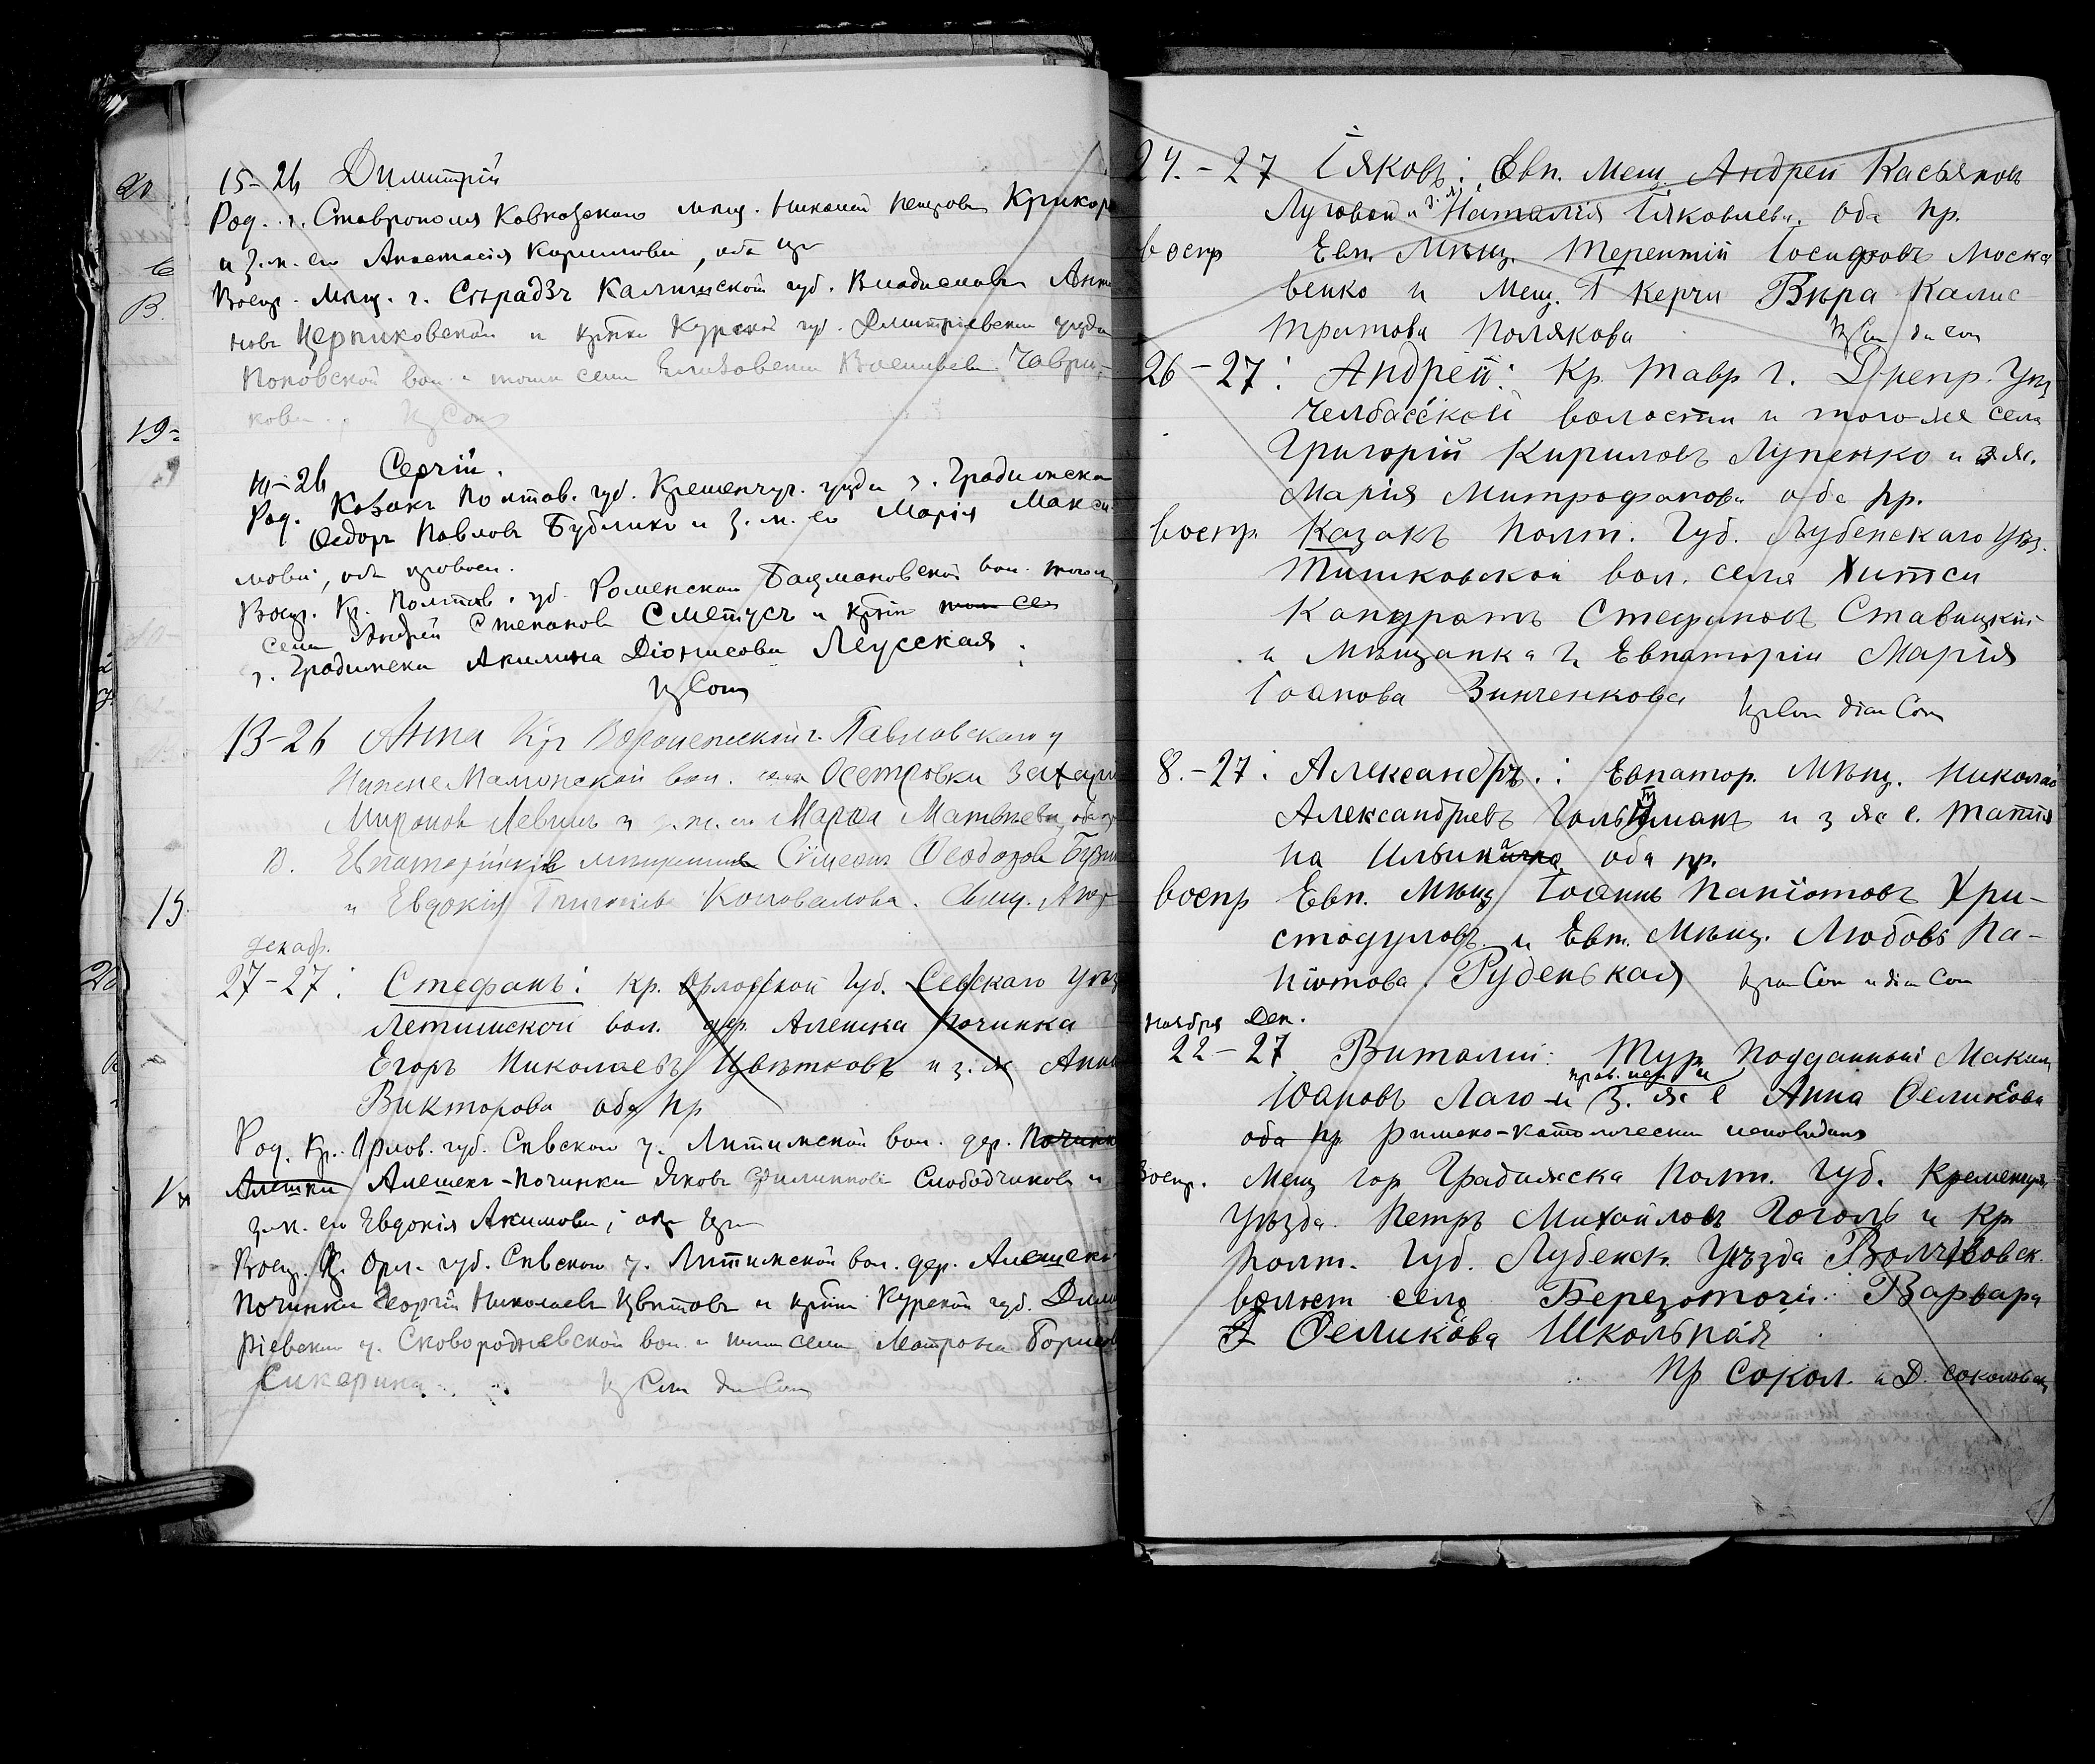 15-26 Димитрій
Род. г. Ставрополя Кавказскаго мѣщ. Николай Петровъ Крикор
и з. ж. его Анастасія Кириллова, оба пр
Воспр. Мѣщ. г. Сѣрадзъ Калишской губ. Владиславъ Анто
новъ Церпиковскій и крѣст. Курской губ. Димитріевскаго уѣзда
Поповской вол. и того села Елизавета Васильева Гаври-
кова. Пр Сок
19-26 Сергій.
Род. Козакъ Полтав. губ. Кременчуг. уѣзда з. Градижска
Ѳедоръ Павловъ Бубликъ и з. ж. ея Марія Макси
мова, оба правосл.
Воспр. Кр. Полтав. губ. Роменскаго Бацмановской вол. того
села Андрей Степановъ Сметусъ и крѣст. того се
г. Градижска Акилина Діонисова Леусская.
Пр Сок
13-26 Анна Кр Воронежской г. Павловскаго у
Нижне Мамонской вол. села Осетровки Захарій
Мироновъ Левинъ и з. ж. его Марѳа Матвѣева, оба пр
В. Евпаторійскій мѣщанинъ Сѵмеонъ Ѳеодоровъ
и Евдокія Коновалова.
декаб.
27-27: Стефанъ: кр. Орловской губ. Севскаго уѣз
Летишской вол. дер. Алешка Починка
Егоръ Николаевъ Цвѣтковъ и з. ж Анна
Викторова оба пр
Род. Кр. Орлов. губ. Сѣвскаго у. Литижской вол. дер. Починк
Алешки Алешекъ-Починки Яковъ Филипповъ Слободчиковъ и
з. ж. его Евдокія Акимова; оба пр
Воспр. К. Орл. губ. Сѣвскаго у. Литижской вол. дер. Алешекъ
Починки Георгій Николаевъ Цвѣтовъ и крѣст. Курской губ. Дми
ріевскаго у. Сковородневской вол. и того села, Матрона Борисо
Сикерина. Пр Сок ди Сок
24.-27 Іаковъ: Евп. Мещ. Андрей Касьяновъ
Луговой и з. ж. Наталія Іаковлева. оба пр.
воспр Евп. Мѣщ. Терентій Іосифовъ Моска
венко и Мещ. Г Керчи Вѣра Калис
тратова Полякова Пр Сок ди сок
26-27: Андрей: Кр. Тавр г. Днепр. Уѣз
Челбасской волости и того-же села
Григорій Кириловъ Лупенко и з ж.
Марія Митрофанова оба пр.
воспр. Казакъ Полт. Губ. Лубенскаго Уѣз.
Тишковской вол. села Хитси
Кандратъ Стефановъ Ставицкій
и Мѣщанка г. Евпаторіи Марія
Іоанова Зинченкова Пр Сок диак Сок
8.-27: Александръ: Евпатор. Мѣщ. Николай
Александріевъ Гольтманъ и з ж е. Татія
на Ильина оба пр.
воспр Евп. Мѣщ Іоаннъ Папіотовъ Хри-
стодуловъ и Евп. Мѣщ. Любовь Па-
піотова Руденькая Пр Сок и диа Сок
Ноября Дек.
22-27 Виталій: Тур подданный Макси
прав. исп. и
Юановъ Лаго-и з. ж е Анна Ѳеликсова
оба пр римско-католическаго исповѣдан
Воспр. Мещ гор Градижска Полт. Губ. Кременчуг
Уѣзда Петръ Михайловъ Гоголь и Кр
Полт. Губ. Лубенск. Уѣзда Волчковск.
волост села Березоточи: Варвара
Ѳеликсова Школьная
Пр Сокол. и Д. Соколовск